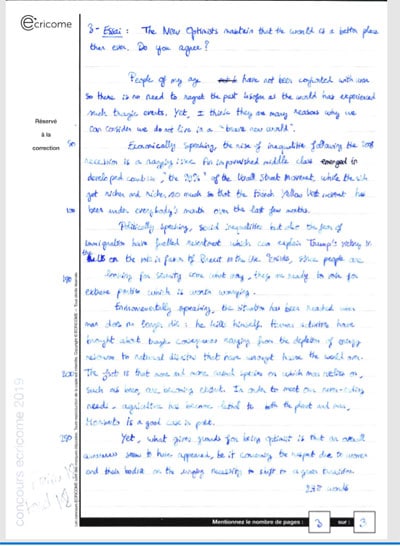 ecricome
3 - Essai : The New Optimists maintain that the world is a better place
than ever. Do you agree?
People of my age have not been confronted with war
so there is no need to regret the past insofar as the world has experienced
such tragic events. Yet, I think they are many reasons why we
can consider we do not live in a "brave new world".
Réservé
à la
correction
50
Economically speaking, the rise of inequalities following the
recession is a worrying issue. An impoverished middle class emerged in
developed countries, "the 99%" of the Wall Street Movement, while the rich
get richer and richer, so much so that the French Yellow Vest movement has
100
been under everybody's mouth over the last few months.
Politically speaking, social inequalities but also the fear of
immigration have fuelled resentment which can explain Trump's victory in
the US or the vote in favor of Brexit in the UK. Besides, since people are
150
looking for security come what may, they are ready to vote for
extreme parties which is worth worrying.
Environmentally speaking, the situation has been reached
man does no longer : he kills himself. Human activities have
brought about tragic consequences ranging from the depletion of energy
resources to natural disasters that have the world over.
200
The fact is that more and more animal species on which man relies on,
such as bees, are becoming extinct. In order to meet our
needs, agriculture has become lethal to both the planet and man.
Monsanto is a good case in point.
250
Yet, what gives grounds for being optimist is that an overall
awareness seem to have appeared, be it concerning the respect due to women
and their bodies or the urging necessity to shift to a green transition
237 words
concours ecricome 2019
Mentionnez le nombre de pages :
3
sur :
3